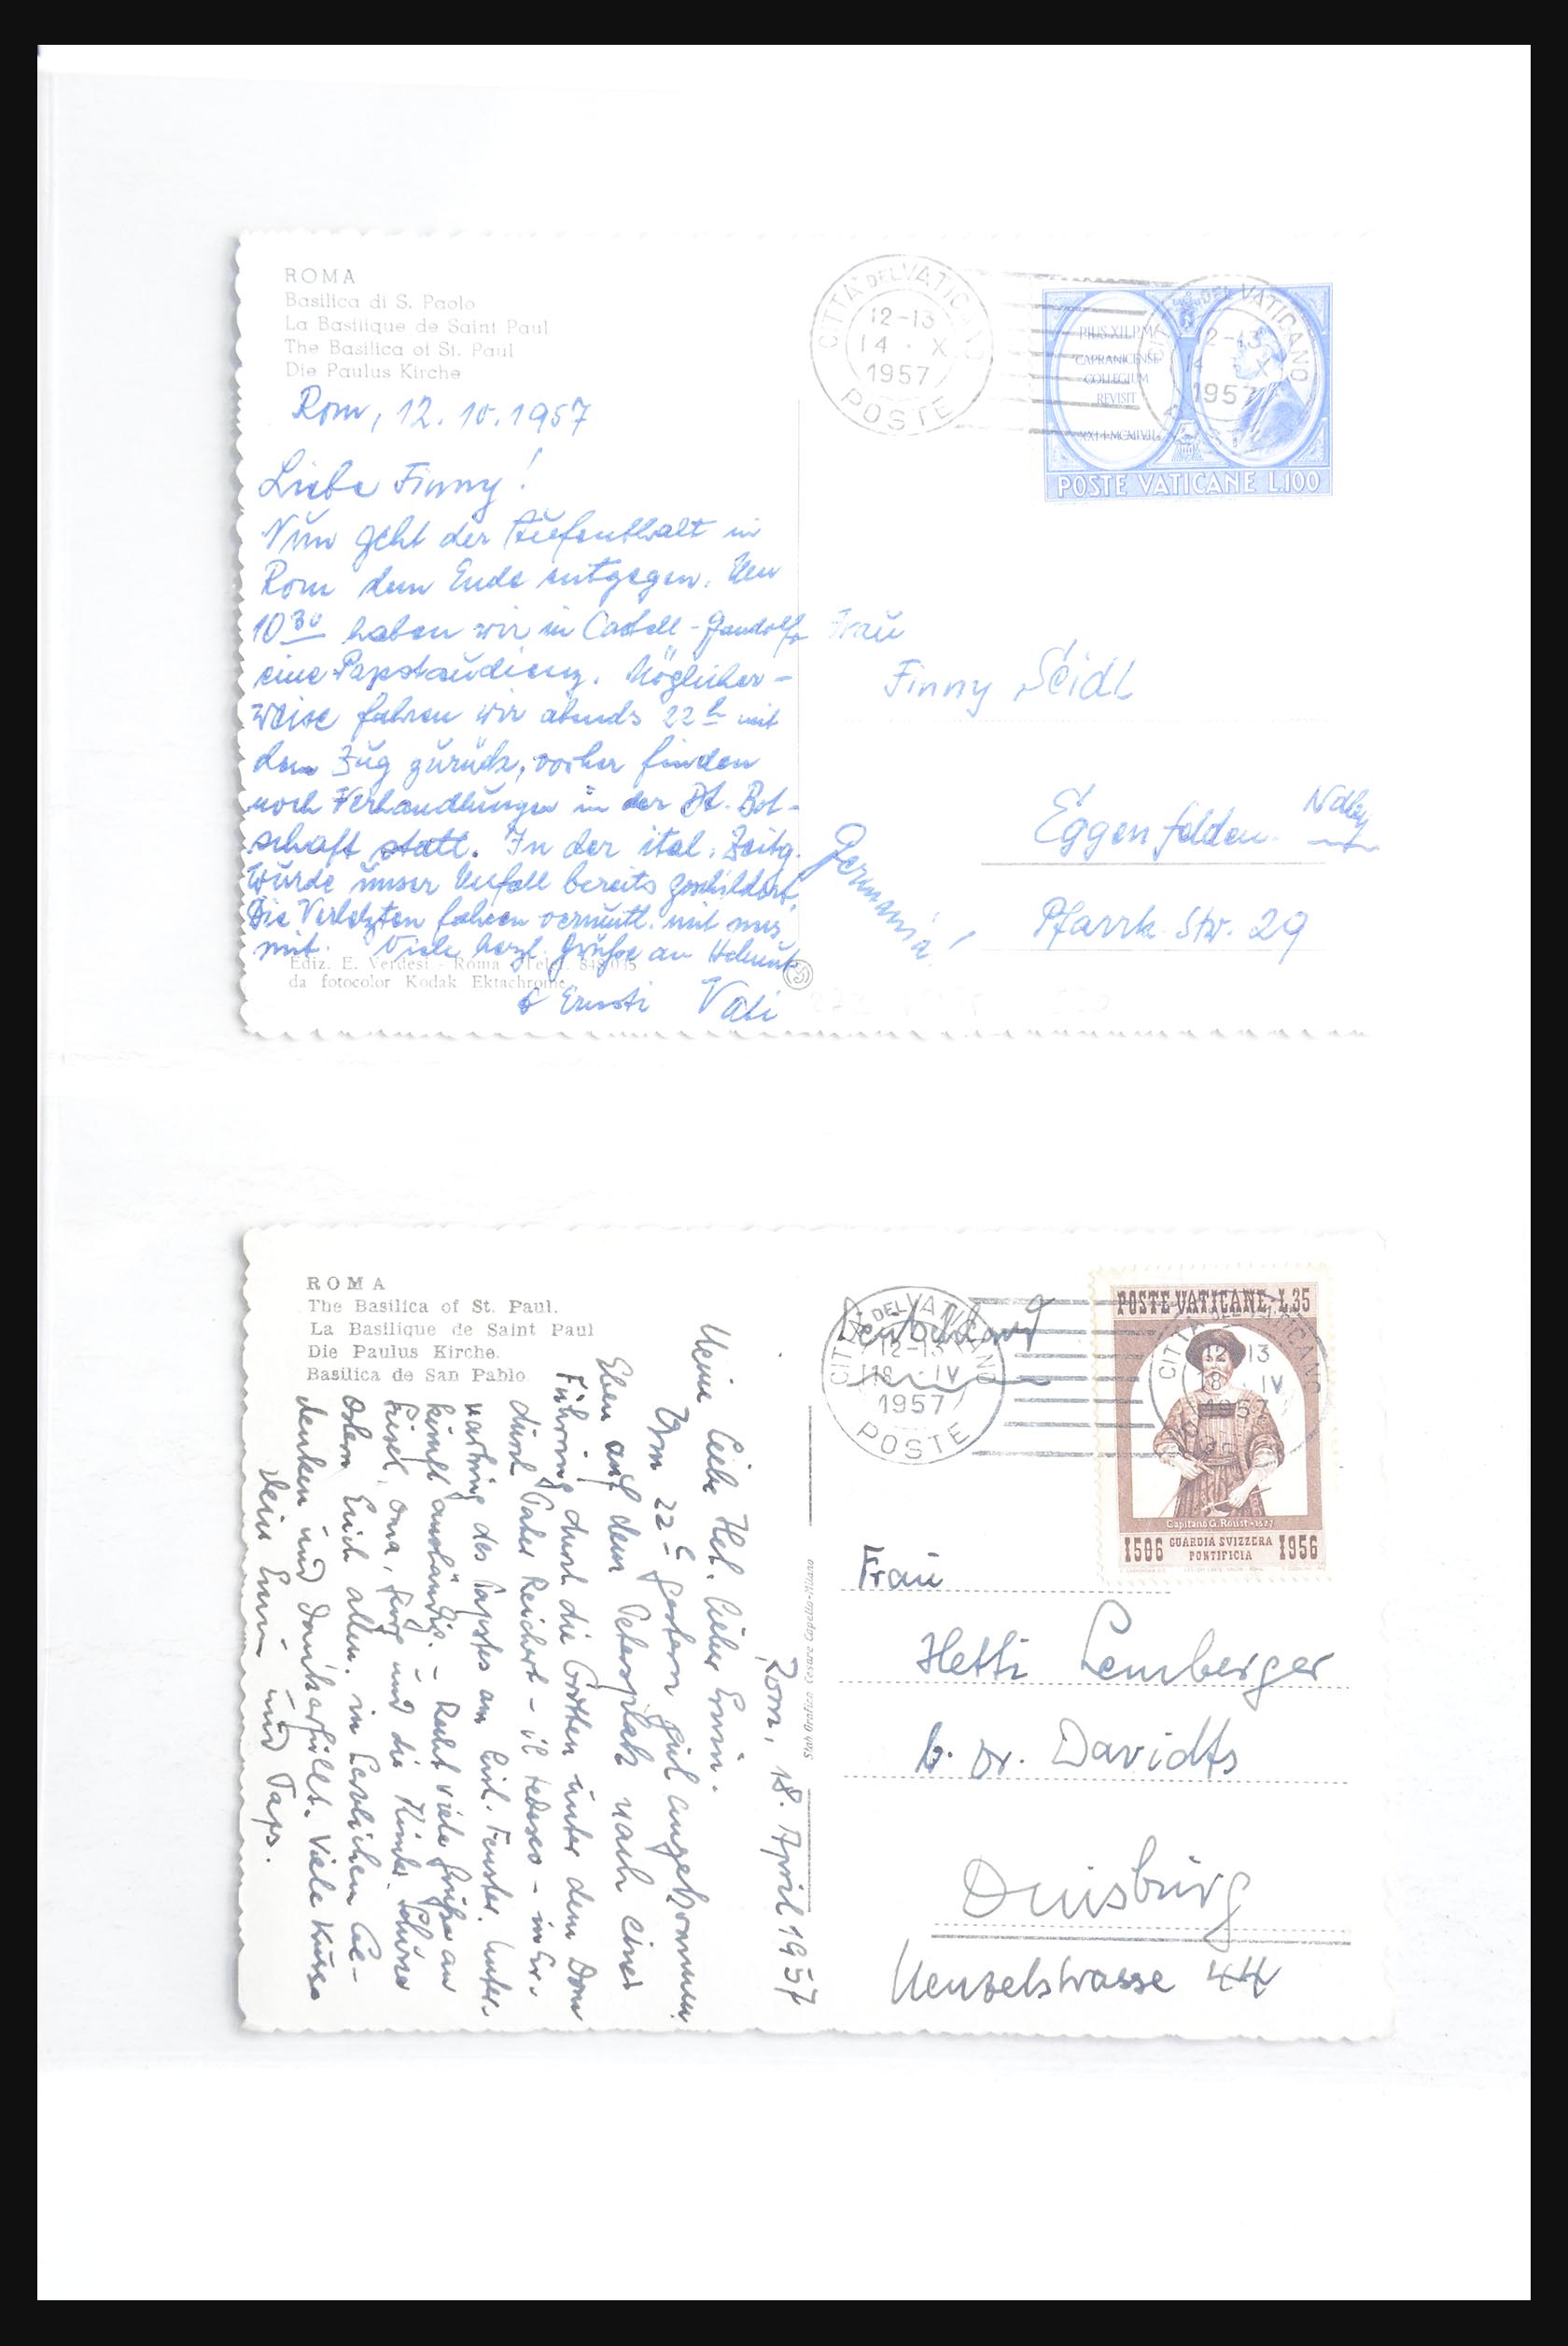 ROMA
Basilica di S. Paolo
La Basilique de Saint Paul
The Basilica of St. Paul
Die Paulus Kirche
Rom, 12.10.1957
Liebe Finny!
Nun geht der Aufenthalt in
Rom dem Ende entgegen. Um
10 30 haben wir in Castell-Gandolfo
eine Papstaudienz. Möglicher-
weise fahren wir abends 22 h mit
dem Zug zurück, vorher finden
noch Verhandlungen in der Dt. Bot-
schaft statt. In der ital. Zeitg.
wurde unser Unfall bereits geschildert.
Die Verletzten fahren vermutl. mit uns
mit. Viele herzl. Grüße an Helmut
& Ernsti Vati
Ediz. E. Verdesi - Roma - Telef. 848 035
da fotocolor Kodak Ektachrome
CITTÀ DEL VATICANO
12-13
14 · X
1957
POSTE
CITTÀ DEL VATICANO
12-13
14 X
1957
PIUS XII.P.M.
CAPRANICENSE
COLLEGIUM
REVISIT
XXI·I·MCMLVII
POSTE VATICANE L.100
Frau
Finny Seidl
Eggenfelden Ndby
Pfarrk. Str. 29
Germania!
ROMA
The Basilica of St. Paul.
La Basilique de Saint Paul
Die Paulus Kirche.
Basilica de San Pablo
Rom, 18. April 1957
Meine liebe Het. lieber Erwin.
Um 22 gestern gut angekommen.
Eben auf dem Petersplatz nach einer
Führung durch die Grotten unter dem Dom
durch Pater Reichert - il tedesco - in Er-
wartung des Papstes am Fenster. Unter-
kunft anständig. - Recht viele Grüße an
Liesel, Oma, und die Kinder. Schöne
Ostern Euch allen. in herzlichem Ge-
denken und dankerfüllt. Viele Küsse
Dein und Paps.
Stab Grafico Cesare Capello-Milano
Deutschland
CITTÀ DEL VATICANO
12-13
18 · IV
1957
POSTE
POSTE VATICANE L.35
CITTÀ DEL VATICANO
12 13
18 · IV
1957
Capitano G. Roust - 1527
1506 GUARDIA SVIZZERA PONTIFICIA 1956
Frau
Hetti Lemberger
b. Dr. Davidts
Duisburg
Menzelstrasse 44